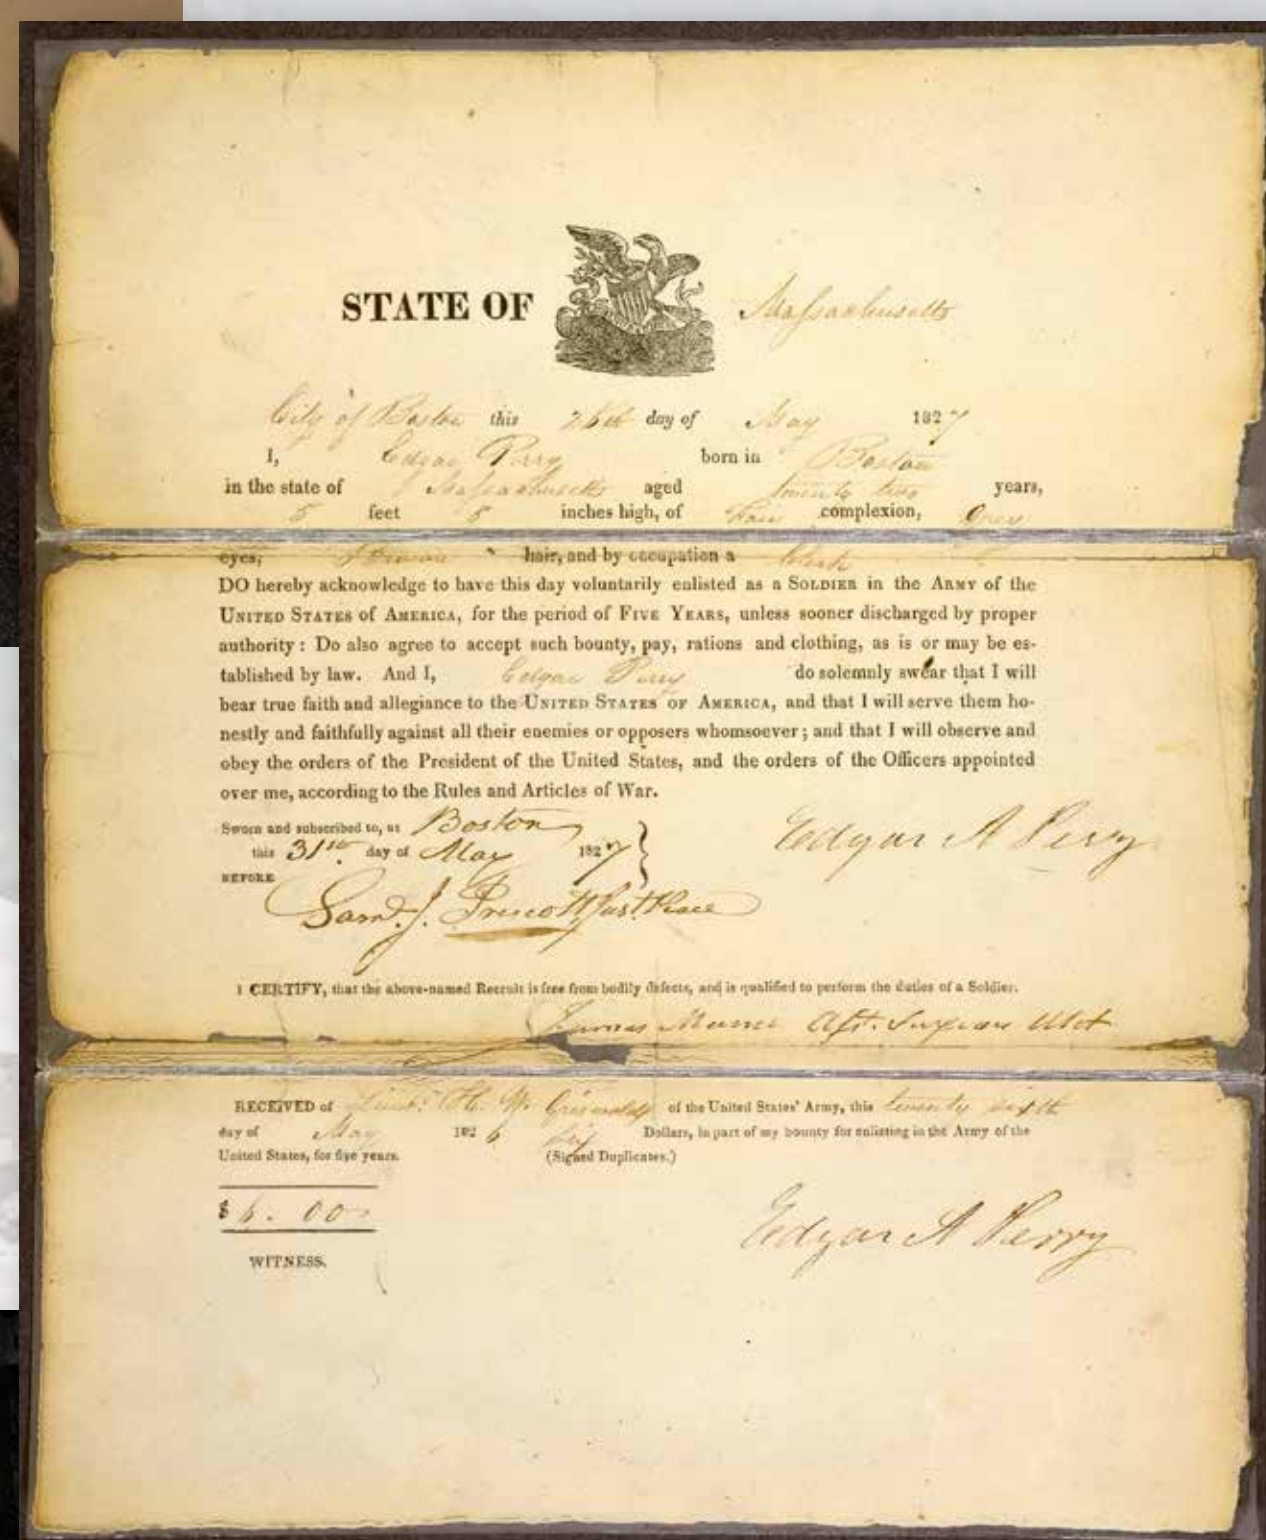 STATE OF Massachusetts
City of Boston this 26th day of May 1827
I, Edgar Perry born in Boston
in the state of Massachusetts aged twenty two years,
5 feet 8 inches high, of fair complexion, Grey
eyes, Brown hair, and by occupation a Clerk
DO hereby acknowledge to have this day voluntarily enlisted as a SOLDIER in the ARMY of the
UNITED STATES OF AMERICA, for the period of FIVE YEARS, unless sooner discharged by proper
authority : Do also agree to accept such bounty, pay, rations and clothing, as is or may be es-
tablished by law. And I, Edgar Perry do solemnly swear that I will
bear true faith and allegiance to the UNITED STATES OF AMERICA, and that I will serve them ho-
nestly and faithfully against all their enemies or opposers whomsoever ; and that I will observe and
obey the orders of the President of the United States, and the orders of the Officers appointed
over me, according to the Rules and Articles of War.
Sworn and subscribed to, at Boston
this 31st day of May 1827
Edgar A Perry
BEFORE
Saml. J. Prescott Just. Peace
I CERTIFY, that the above-named Recruit is free from bodily defects, and is qualified to perform the duties of a Soldier.
James Mann
RECEIVED of Lieut. H. W. Griswold of the United States' Army, this twenty sixth
day of May 1826 six Dollars, in part of my bounty for enlisting in the Army of the
United States, for five years. (Signed Duplicates.)
$ 6. 00
Edgar A Perry
WITNESS.